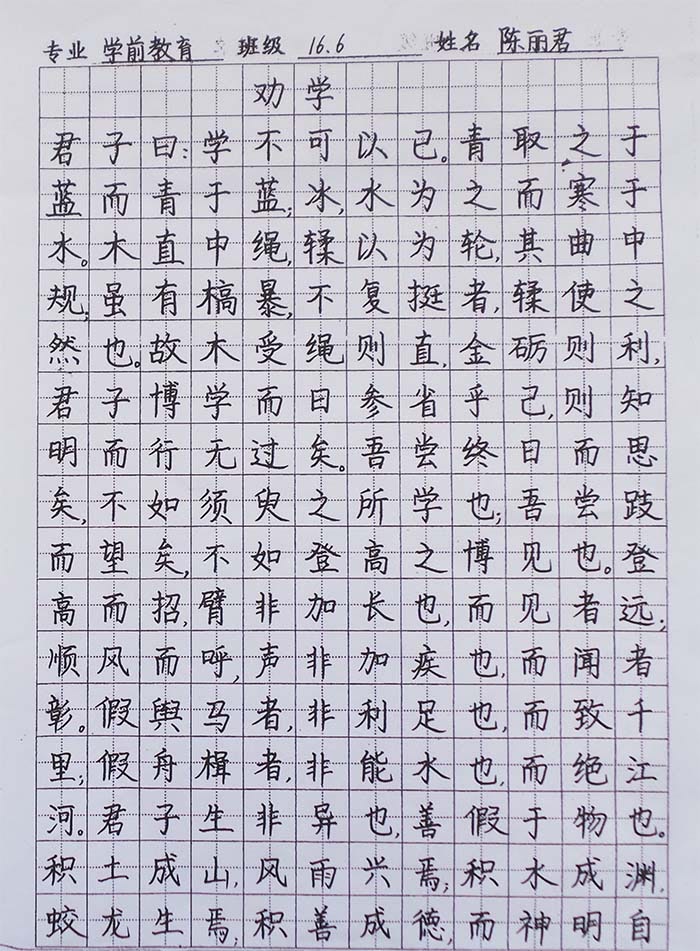 专业 学前教育 班级 16.6 姓名 陈丽君
劝学
君子曰:学不可以已。青取之于
蓝而青于蓝;冰,水为之而寒于
水。木直中绳,輮以为轮,其曲中
规;虽有槁暴,不复挺者,輮使之
然也。故木受绳则直,金砺则利,
君子博学而日参省乎己,则知
明而行无过矣。吾尝终日而思
矣,不如须臾之所学也;吾尝跂
而望矣,不如登高之博见也。登
高而招,臂非加长也,而见者远;
顺风而呼,声非加疾也,而闻者
彰。假舆马者,非利足也,而致千
里;假舟楫者,非能水也,而绝江
河。君子生非异也,善假于物也。
积土成山,风雨兴焉;积水成渊,
蛟龙生焉;积善成德,而神明自